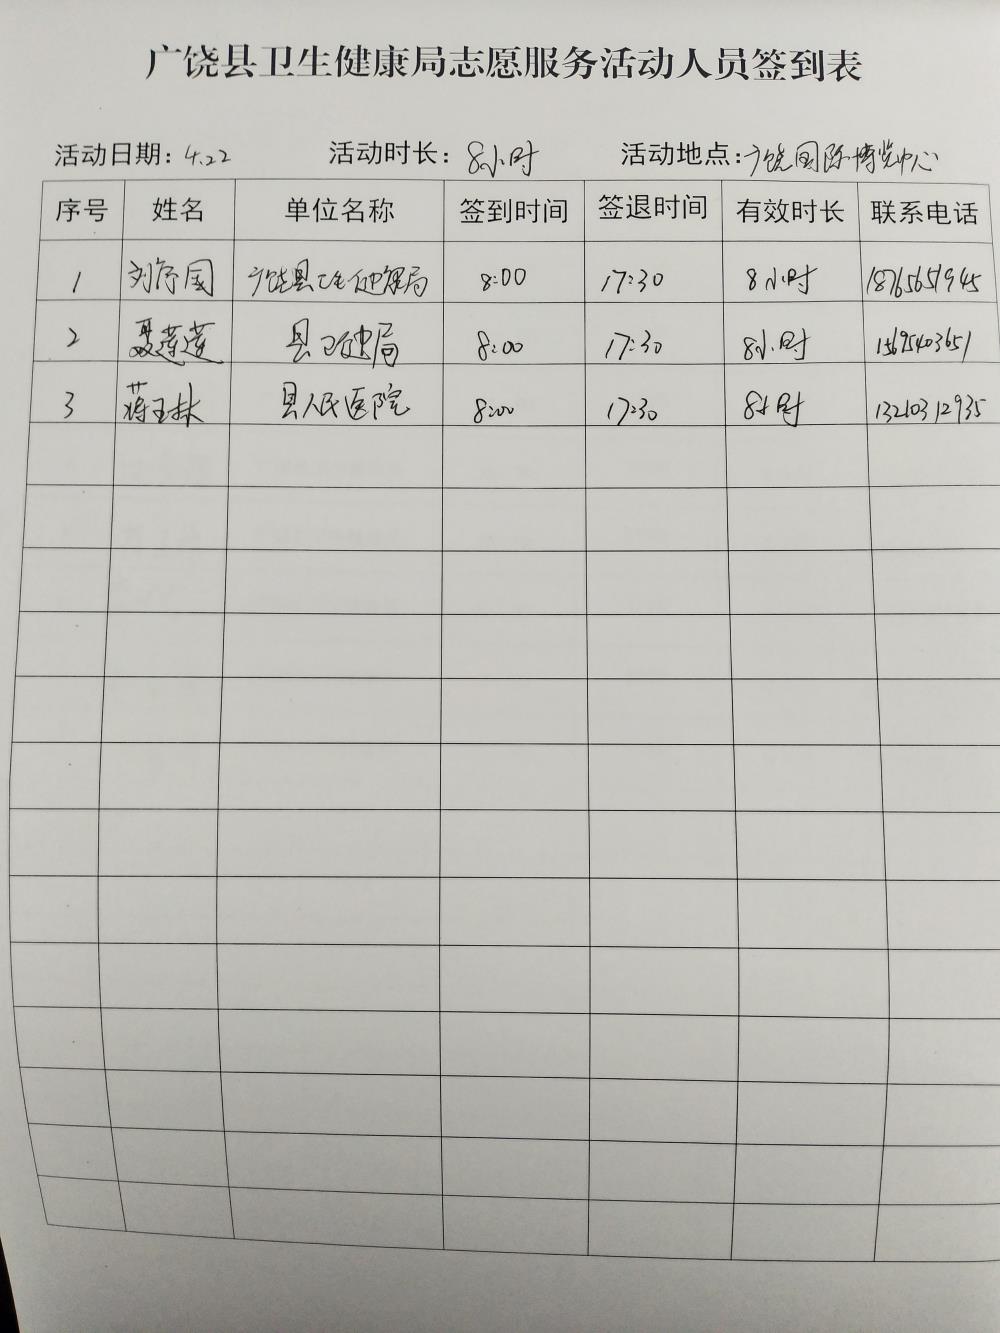 广饶县卫生健康局志愿服务活动人员签到表
活动日期：4.22 活动时长：8小时 活动地点：广饶国际博览中心
序号 姓名 单位名称 签到时间 签退时间 有效时长 联系电话
1 广饶县卫生健康局 8:00 17:30 8小时 18765651945
2 聂莲莲 县卫健局 8:00 17:30 8小时 15695403651
3 蒋玉林 县人民医院 8:00 17:30 8小时 13210312935